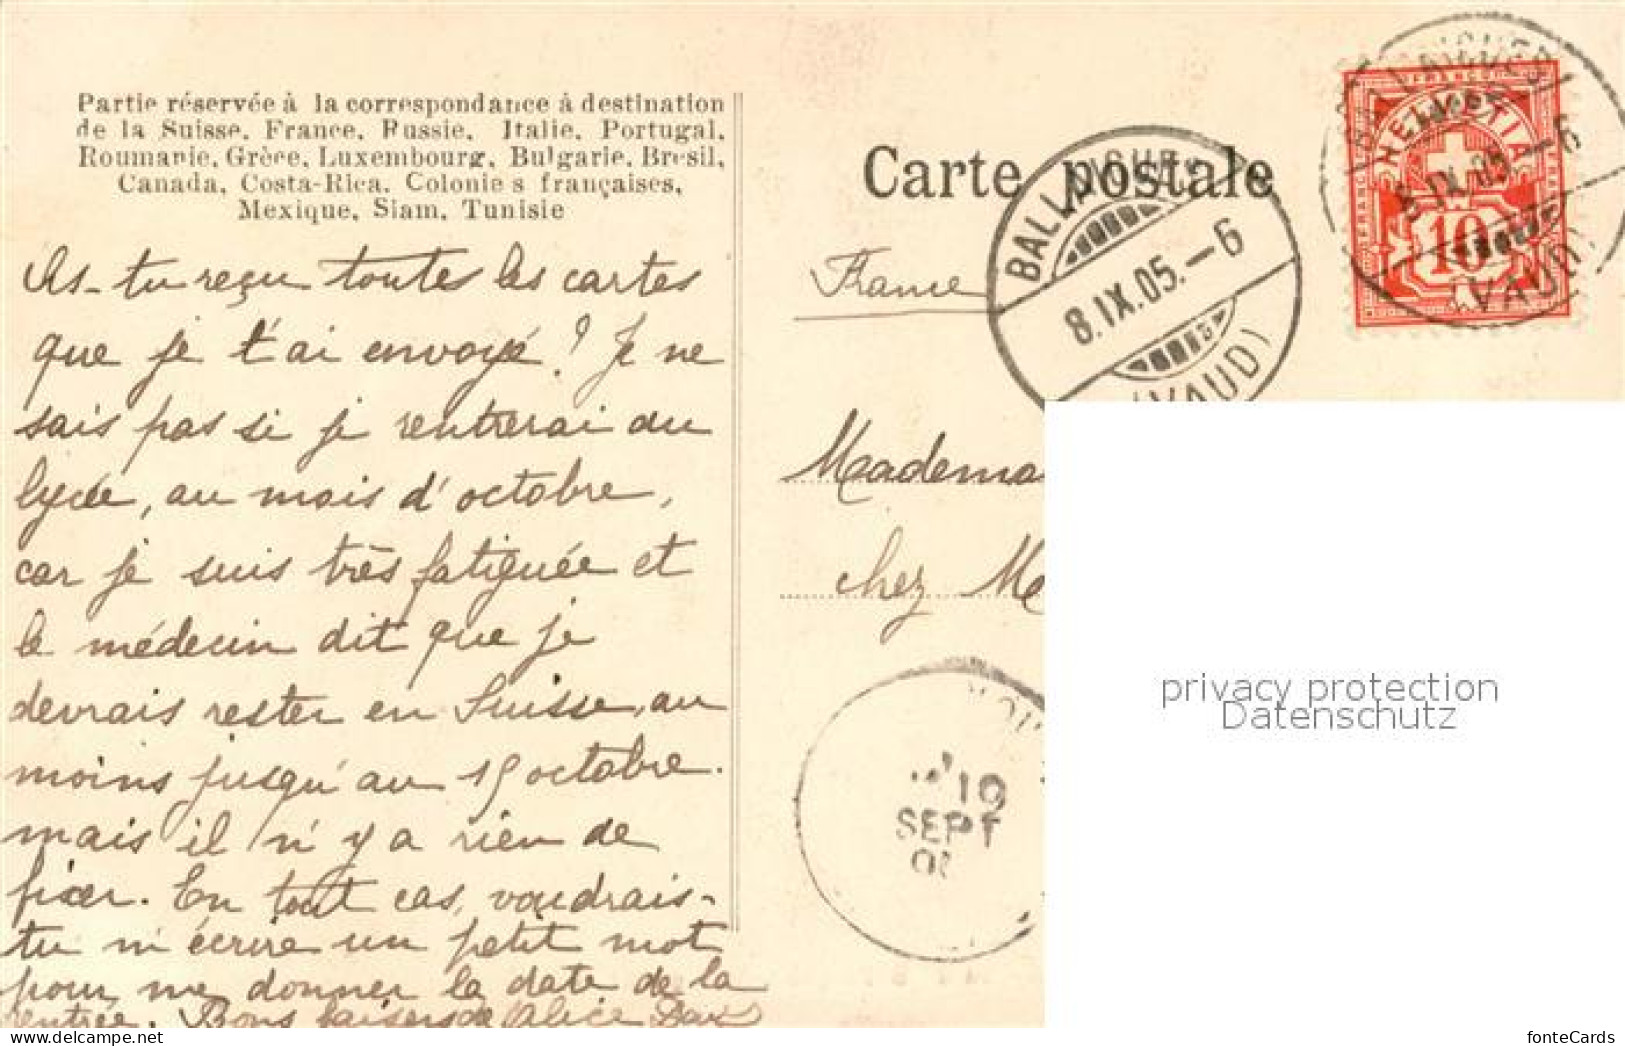 Partie réservée à la correspondance à destination
de la Suisse, France, Russie, Italie, Portugal,
Roumanie, Grèce, Luxembourg, Bulgarie, Bresil,
Canada, Costa-Rica, Colonies françaises,
Mexique, Siam, Tunisie
As-tu reçu toutes les cartes
que je t'ai envoyé? Je ne
sais pas si je rentrerai au
lycée, au mois d'octobre,
car je suis très fatiguée et
le médecin dit que je
devrais rester en Suisse, au
moins jusqu'au 15 octobre.
mais il n'y a rien de
fixer. En tout cas, voudrais-
tu m'écrire un petit mot
pour me donner la date de la
rentrée. Bons baisers de Alice
Carte postale
France
BALLAIGUES
8.IX.05.-6
(VAUD)
FRANCO
HELVETIA
10
BALLAIGUES
8.IX.05.-6
(VAUD)
Mademoi
chez M
10
SEPT
privacy protection
Datenschutz
fonteCards